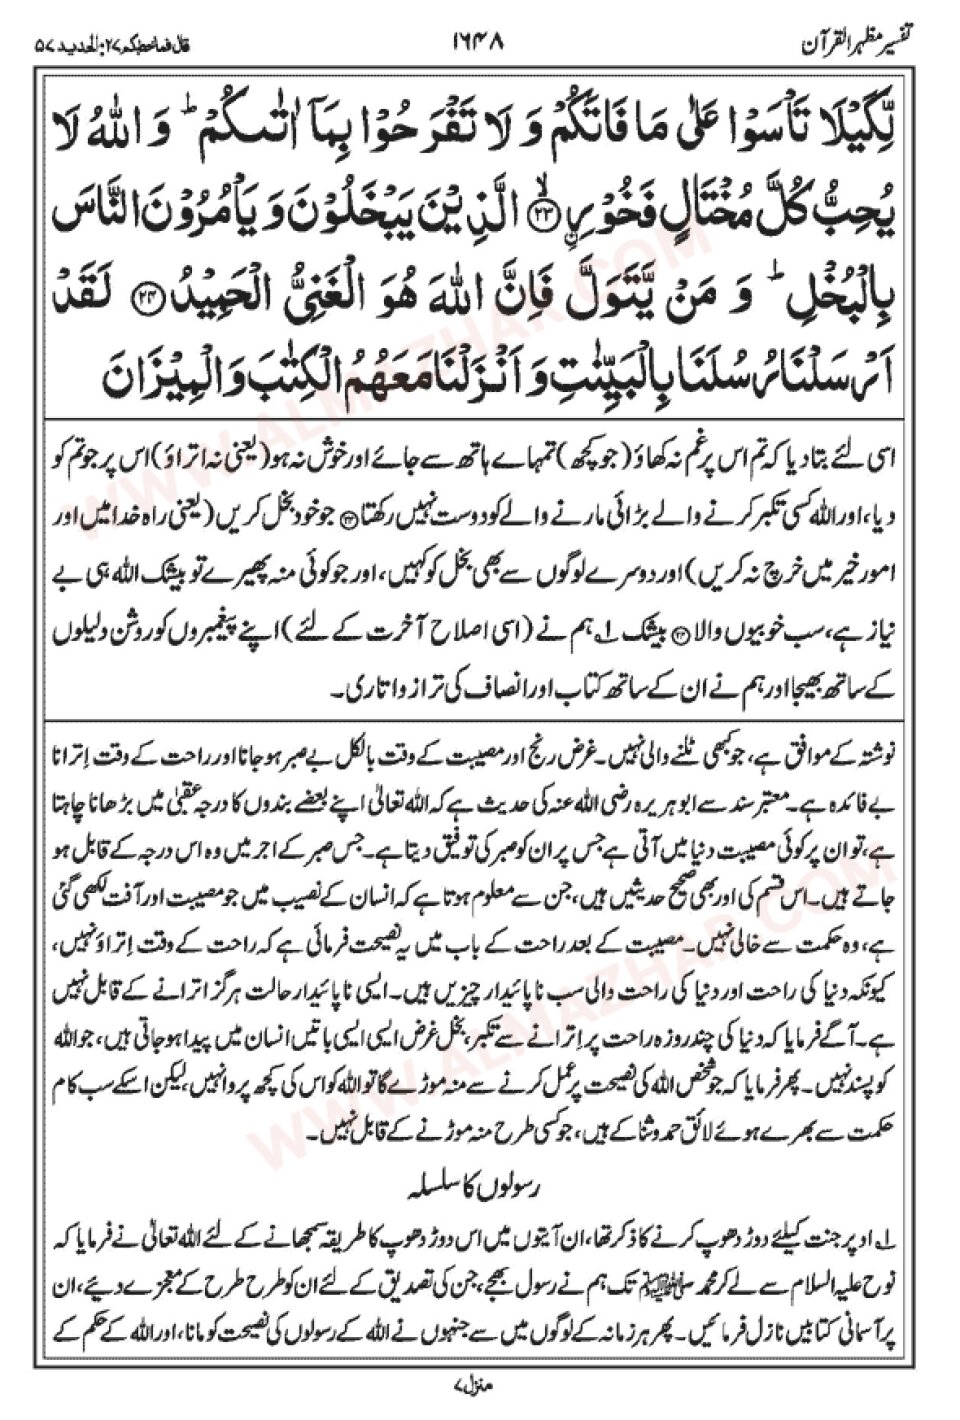 تفسیر مظہر القرآن
۱۶۴۸
قال فما خطبکم ۲۷: الحدید ۵۷
لِّكَيْلَا تَأْسَوْا عَلٰى مَا فَاتَكُمْ وَ لَا تَفْرَحُوْا بِمَآ اٰتٰىكُمْ ؕ وَ اللّٰهُ لَا
يُحِبُّ كُلَّ مُخْتَالٍ فَخُوْرِ ۙ﴿۲۳﴾ الَّذِيْنَ يَبْخَلُوْنَ وَ يَاْمُرُوْنَ النَّاسَ
بِالْبُخْلِ ؕ وَ مَنْ يَّتَوَلَّ فَاِنَّ اللّٰهَ هُوَ الْغَنِيُّ الْحَمِيْدُ ﴿۲۴﴾ لَقَدْ
اَرْسَلْنَا رُسُلَنَا بِالْبَيِّنٰتِ وَ اَنْزَلْنَا مَعَهُمُ الْكِتٰبَ وَ الْمِيْزَانَ
اسی لئے بتا دیا کہ تم اس پر غم نہ کھاؤ (جو کچھ) تمہارے ہاتھ سے جائے اور خوش نہ ہو (یعنی نہ اتراؤ) اس پر جو تم کو
دیا، اور اللہ کسی تکبر کرنے والے بڑائی مارنے والے کو دوست نہیں رکھتا ﴿۲۳﴾ جو خود بخل کریں (یعنی راہ خدا میں اور
امور خیر میں خرچ نہ کریں) اور دوسرے لوگوں سے بھی بخل کو کہیں، اور جو کوئی منہ پھیرے تو بیشک اللہ ہی بے
نیاز ہے، سب خوبیوں والا ﴿۲۴﴾ بیشک ۱؎ ہم نے (اسی اصلاح آخرت کے لئے) اپنے پیغمبروں کو روشن دلیلوں
کے ساتھ بھیجا اور ہم نے ان کے ساتھ کتاب اور انصاف کی ترازو اتاری۔
نوشتہ کے موافق ہے، جو کبھی ٹلنے والی نہیں۔ غرض رنج اور مصیبت کے وقت بالکل بے صبر ہو جانا اور راحت کے وقت اِترانا
بے فائدہ ہے۔ معتبر سند سے ابو ہریرہ رضی اللہ عنہ کی حدیث ہے کہ اللہ تعالیٰ اپنے بعضے بندوں کا درجہ عقبیٰ میں بڑھانا چاہتا
ہے، تو ان پر کوئی مصیبت دنیا میں آتی ہے جس پر ان کو صبر کی توفیق دیتا ہے۔ جس صبر کے اجر میں وہ اس درجہ کے قابل ہو
جاتے ہیں۔ اس قسم کی اور بھی صحیح حدیثیں ہیں، جن سے معلوم ہوتا ہے کہ انسان کے نصیب میں جو مصیبت اور آفت لکھی گئی
ہے، وہ حکمت سے خالی نہیں۔ مصیبت کے بعد راحت کے باب میں یہ نصیحت فرمائی ہے کہ راحت کے وقت اِتراؤ نہیں،
کیونکہ دنیا کی راحت اور دنیا کی راحت والی سب ناپائیدار چیزیں ہیں۔ ایسی ناپائیدار حالت ہرگز اترانے کے قابل نہیں
ہے۔ آگے فرمایا کہ دنیا کی چند روزہ راحت پر اِترانے سے تکبر، بخل غرض ایسی ایسی باتیں انسان میں پیدا ہو جاتی ہیں، جو اللہ
کو پسند نہیں۔ پھر فرمایا کہ جو شخص اللہ کی نصیحت پر عمل کرنے سے منہ موڑے گا تو اللہ کو اس کی کچھ پروا نہیں، لیکن اسکے سب کام
حکمت سے بھرے ہوئے لائق حمد و ثنا کے ہیں، جو کسی طرح منہ موڑنے کے قابل نہیں۔
رسولوں کا سلسلہ
۱؎ اوپر جنت کیلئے دوڑ دھوپ کرنے کا ذکر تھا، ان آیتوں میں اس دوڑ دھوپ کا طریقہ سمجھانے کے لئے اللہ تعالیٰ نے فرمایا کہ
نوح علیہ السلام سے لے کر محمد ﷺ تک ہم نے رسول بھیجے، جن کی تصدیق کے لئے ان کو طرح طرح کے معجزے دیئے، ان
پر آسمانی کتابیں نازل فرمائیں۔ پھر ہر زمانہ کے لوگوں میں سے جنہوں نے اللہ کے رسولوں کی نصیحت کو مانا، اور اللہ کے حکم کے
منزل ۷
WWW.ALMAZHAR.COM
WWW.ALMAZHAR.COM